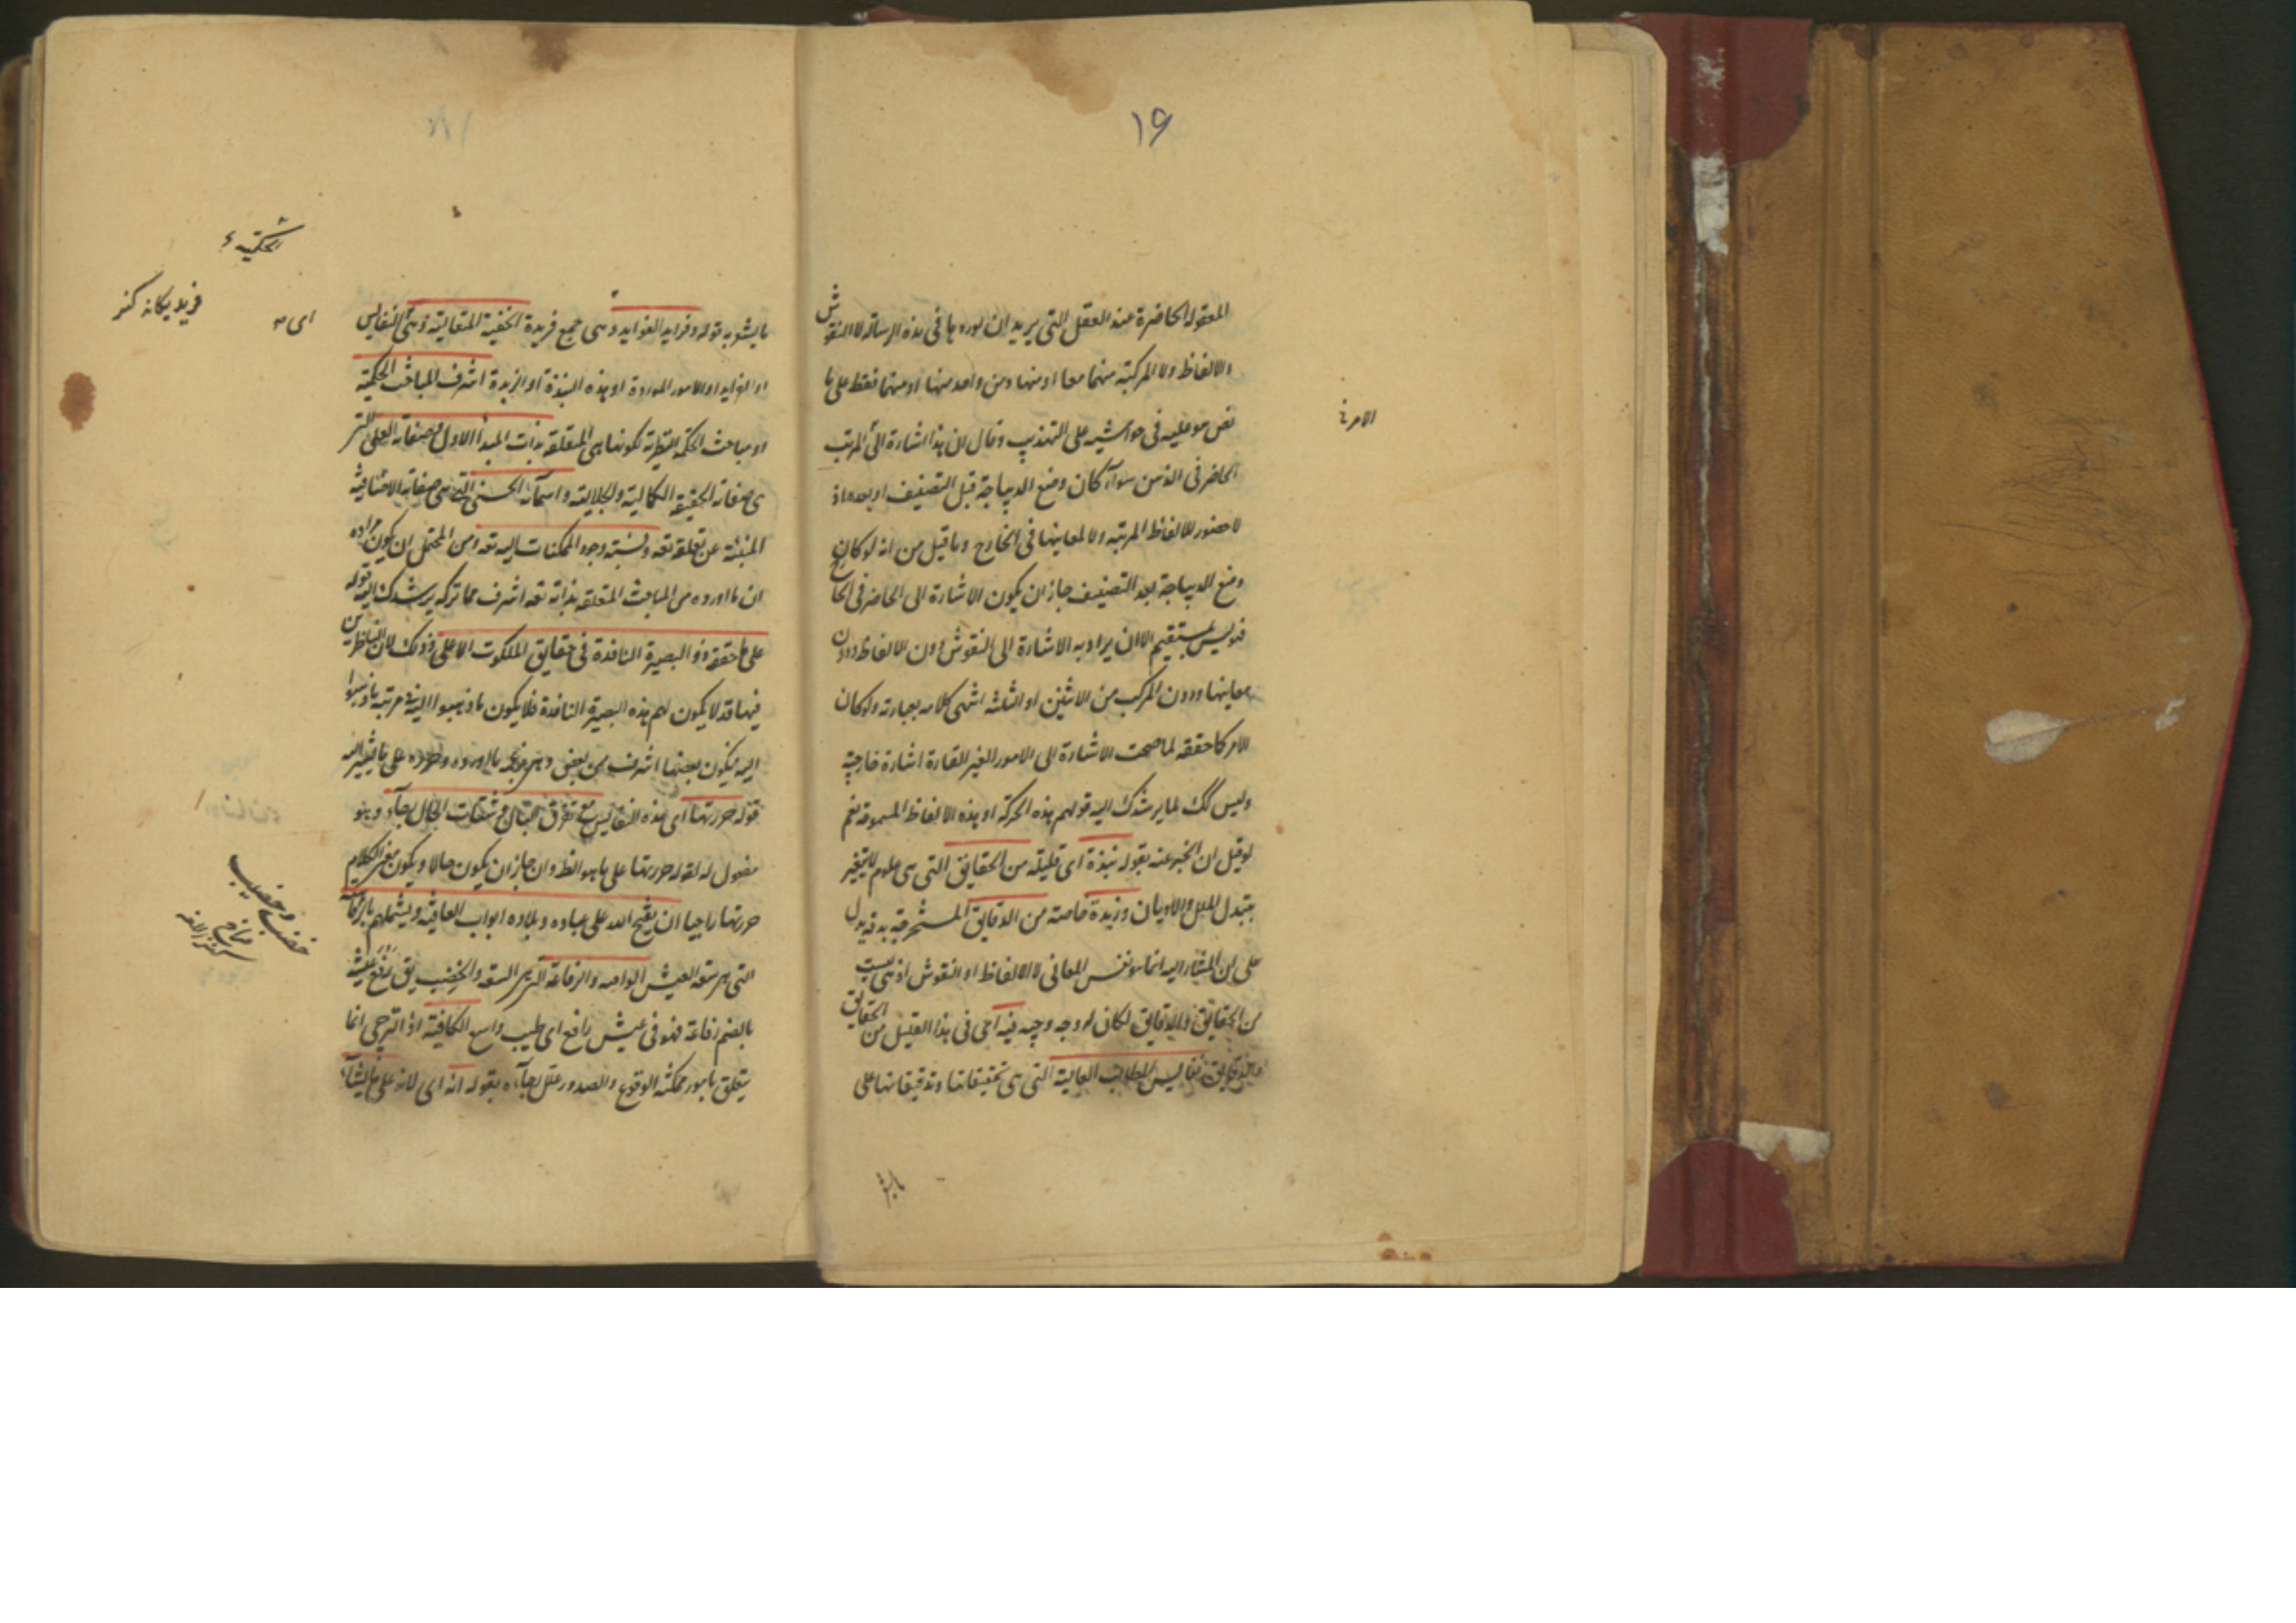 ١٦
المعقولة الحاضرة عند العقل التي يريد ان يوردها في هذه الرسالة لا النقوش
والالفاظ ولا المركبة منهما معا او منها ومن واحد منها او منهما فقط على ما
نص هو عليه في حواشيه على التهذيب وقال ان هذا اشارة الى المرتب
الحاضر في الذهن سواء كان وضع الديباجة قبل التصنيف او بعده اذ
لا حضور للالفاظ المرتبة ولا لمعانيها في الخارج وما قيل من انه لو كان
وضع الديباجة بعد التصنيف جاز ان يكون الاشارة الى الحاضر في الخارج
فهو ليس بمستقيم الا ان يراد به الاشارة الى النقوش دون الالفاظ ودون
معانيها ودون المركب من الاثنين او الثلثة انتهى كلامه بعبارته ولو كان
الامر كما حققه لما صحت الاشارة الى الامور الغير القارة اشارة خارجية
وليس كك لما يرشدك اليه قولهم هذه الحركة او هذه الالفاظ المسموعة نعم
لو قيل ان المخبر عنه بقوله نبذة اى قليلة من الحقايق التي هى علوم لا يتغير
بتبدل الملل والاديان وزبدة خاصة من الدقايق المستخرجة بدقة يدل
على ان المشار اليه انما هو نفس المعانى لا الالفاظ او النقوش اذ هى ليست
من الحقايق والدقايق لكان له وجه وجيه فيه اى في هذا القليل من الحقايق
والدقايق نفايس المطالب العالية التي هى تحقيقاتها وتدقيقاتها على
الامر
ما يشوبه قوله وفرايد الفوايد وهى جمع فريدة الخفية المتعالية وهى النفايس
او الفرايد او الامور الموردة او هذه النبذة او الزبدة اشرف المباحث الحكمية
او مباحث الحكمة النظرية لكونها هى المتعلقة بذات المبدأ الاول وصفاته العلى التى
هى صفاته الحقيقة الكمالية والجلالية واسمائه الحسنى التى هى صفاته الاضافية
المنبئة عن تعلقه تعه ونسبة وجود الممكنات اليه تعه ومن المحتمل ان يكون مراده
ان ما اورده من المباحث المتعلقة بذاته تعه اشرف مما تركه يرشدك اليه قوله
على ما حققه ذو البصيرة النافذة في حقايق الملكوت الاعلى وذلك لان الناظرين
فيها قد لا يكون لهم هذه البصيرة النافذة فلا يكون ما ذهبوا اليه في مرتبة ما ذهبوا
اليه فيكون بعضها اشرف من بعض وهى على ما يشير اليه
قوله حررتها اى هذه النفايس مع تفرق البال وشتات الحال رجاء وهو
مفعول له لقوله حررتها على ما هو الظ وان جاز ان يكون حالا ويكون معنى الكلام
حررتها راجيا ان يفتح الله على عباده وبلاده ابواب العافية ويشملهم بالرفاهة
التى هى سعة العيش الواهبة والرفاغة التى هى السعة والخصب يق رفغ عيشه
بالضم رفاغة فهو في عيش رافغ اى طيب واسع الكافية اذ الترجى انما
يتعلق بامور ممكنة الوقوع والصدور علل رجاءه بقوله انه اى لانه على ما يشاء
الحكمية
اى
فريد يگانه گنز
خصب وخصيب